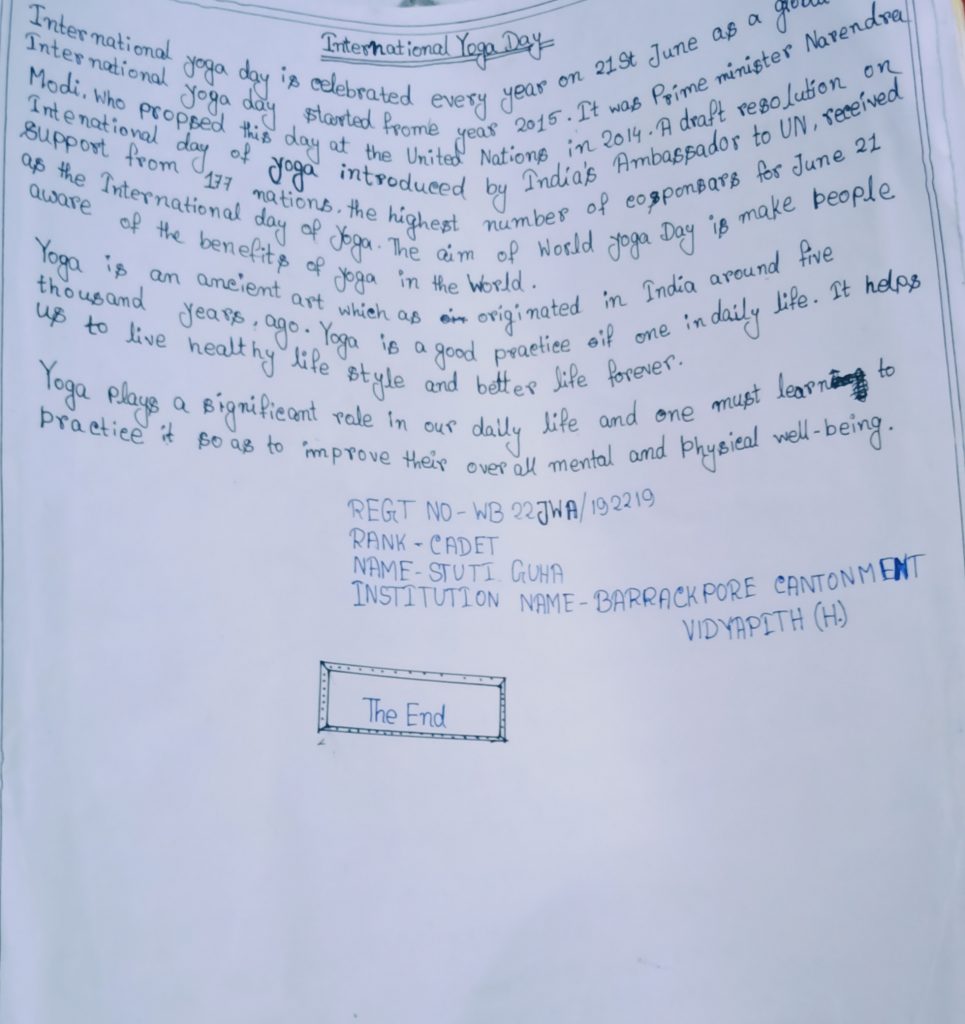 International Yoga Day
International yoga day is celebrated every year on 21st June as a
International yoga day started frome year 2015. It was Prime minister Narendra
Modi. Who propsed this day at the United Nations in 2014. A draft resolution on
Intenational day of yoga introduced by India's Ambassador to UN, received
support from 177 nations. the highest number of cosponsars for June 21
as the International day of Yoga. The aim of World yoga Day is make people
aware of the benefits of yoga in the World.
Yoga is an ancient art which as originated in India around five
thousand years, ago. Yoga is a good practice if one in daily life. It helps
us to live healthy life style and better life forever.
Yoga plays a significant role in our daily life and one must learn to
practice it so as to improve their over all mental and physical well-being.
REGT NO - WB 22JWA/192219
RANK - CADET
NAME - STUTI GUHA
INSTITUTION NAME - BARRACKPORE CANTONMENT
VIDYAPITH (H.)
The End